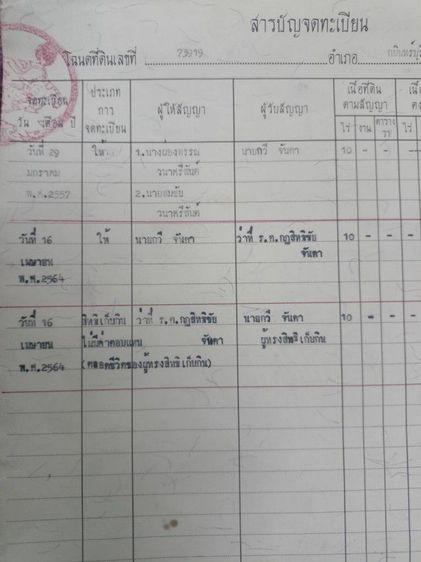 สารบัญจดทะเบียน
โฉนดที่ดินเลขที่ 73919 อำเภอ กบินทร์บุรี
จดทะเบียน วัน เดือน ปี
ประเภท การ จดทะเบียน
ผู้ให้สัญญา
ผู้รับสัญญา
เนื้อที่ดิน ตามสัญญา
ไร่ งาน ตาราง วา
ไร่
วันที่ 29 ให้ 1.นาง นายกวี จันดา 10 - - -
มกราคม
พ.ศ.2557 2.นายสมชัย
วันที่ 16 ให้ นายกวี จันดา ว่าที่ ร.ต.กฎสิทธิชัย 10 - - -
เมษายน จันดา
พ.ศ.2564
วันที่ 16 สิทธิเก็บกิน ว่าที่ ร.ต.กฎสิทธิชัย นายกวี จันดา 10 - - -
เมษายน ไม่มีค่าตอบแทน จันดา ผู้ทรงสิทธิเก็บกิน
พ.ศ.2564 (ตลอดชีวิตของผู้ทรงสิทธิเก็บกิน)